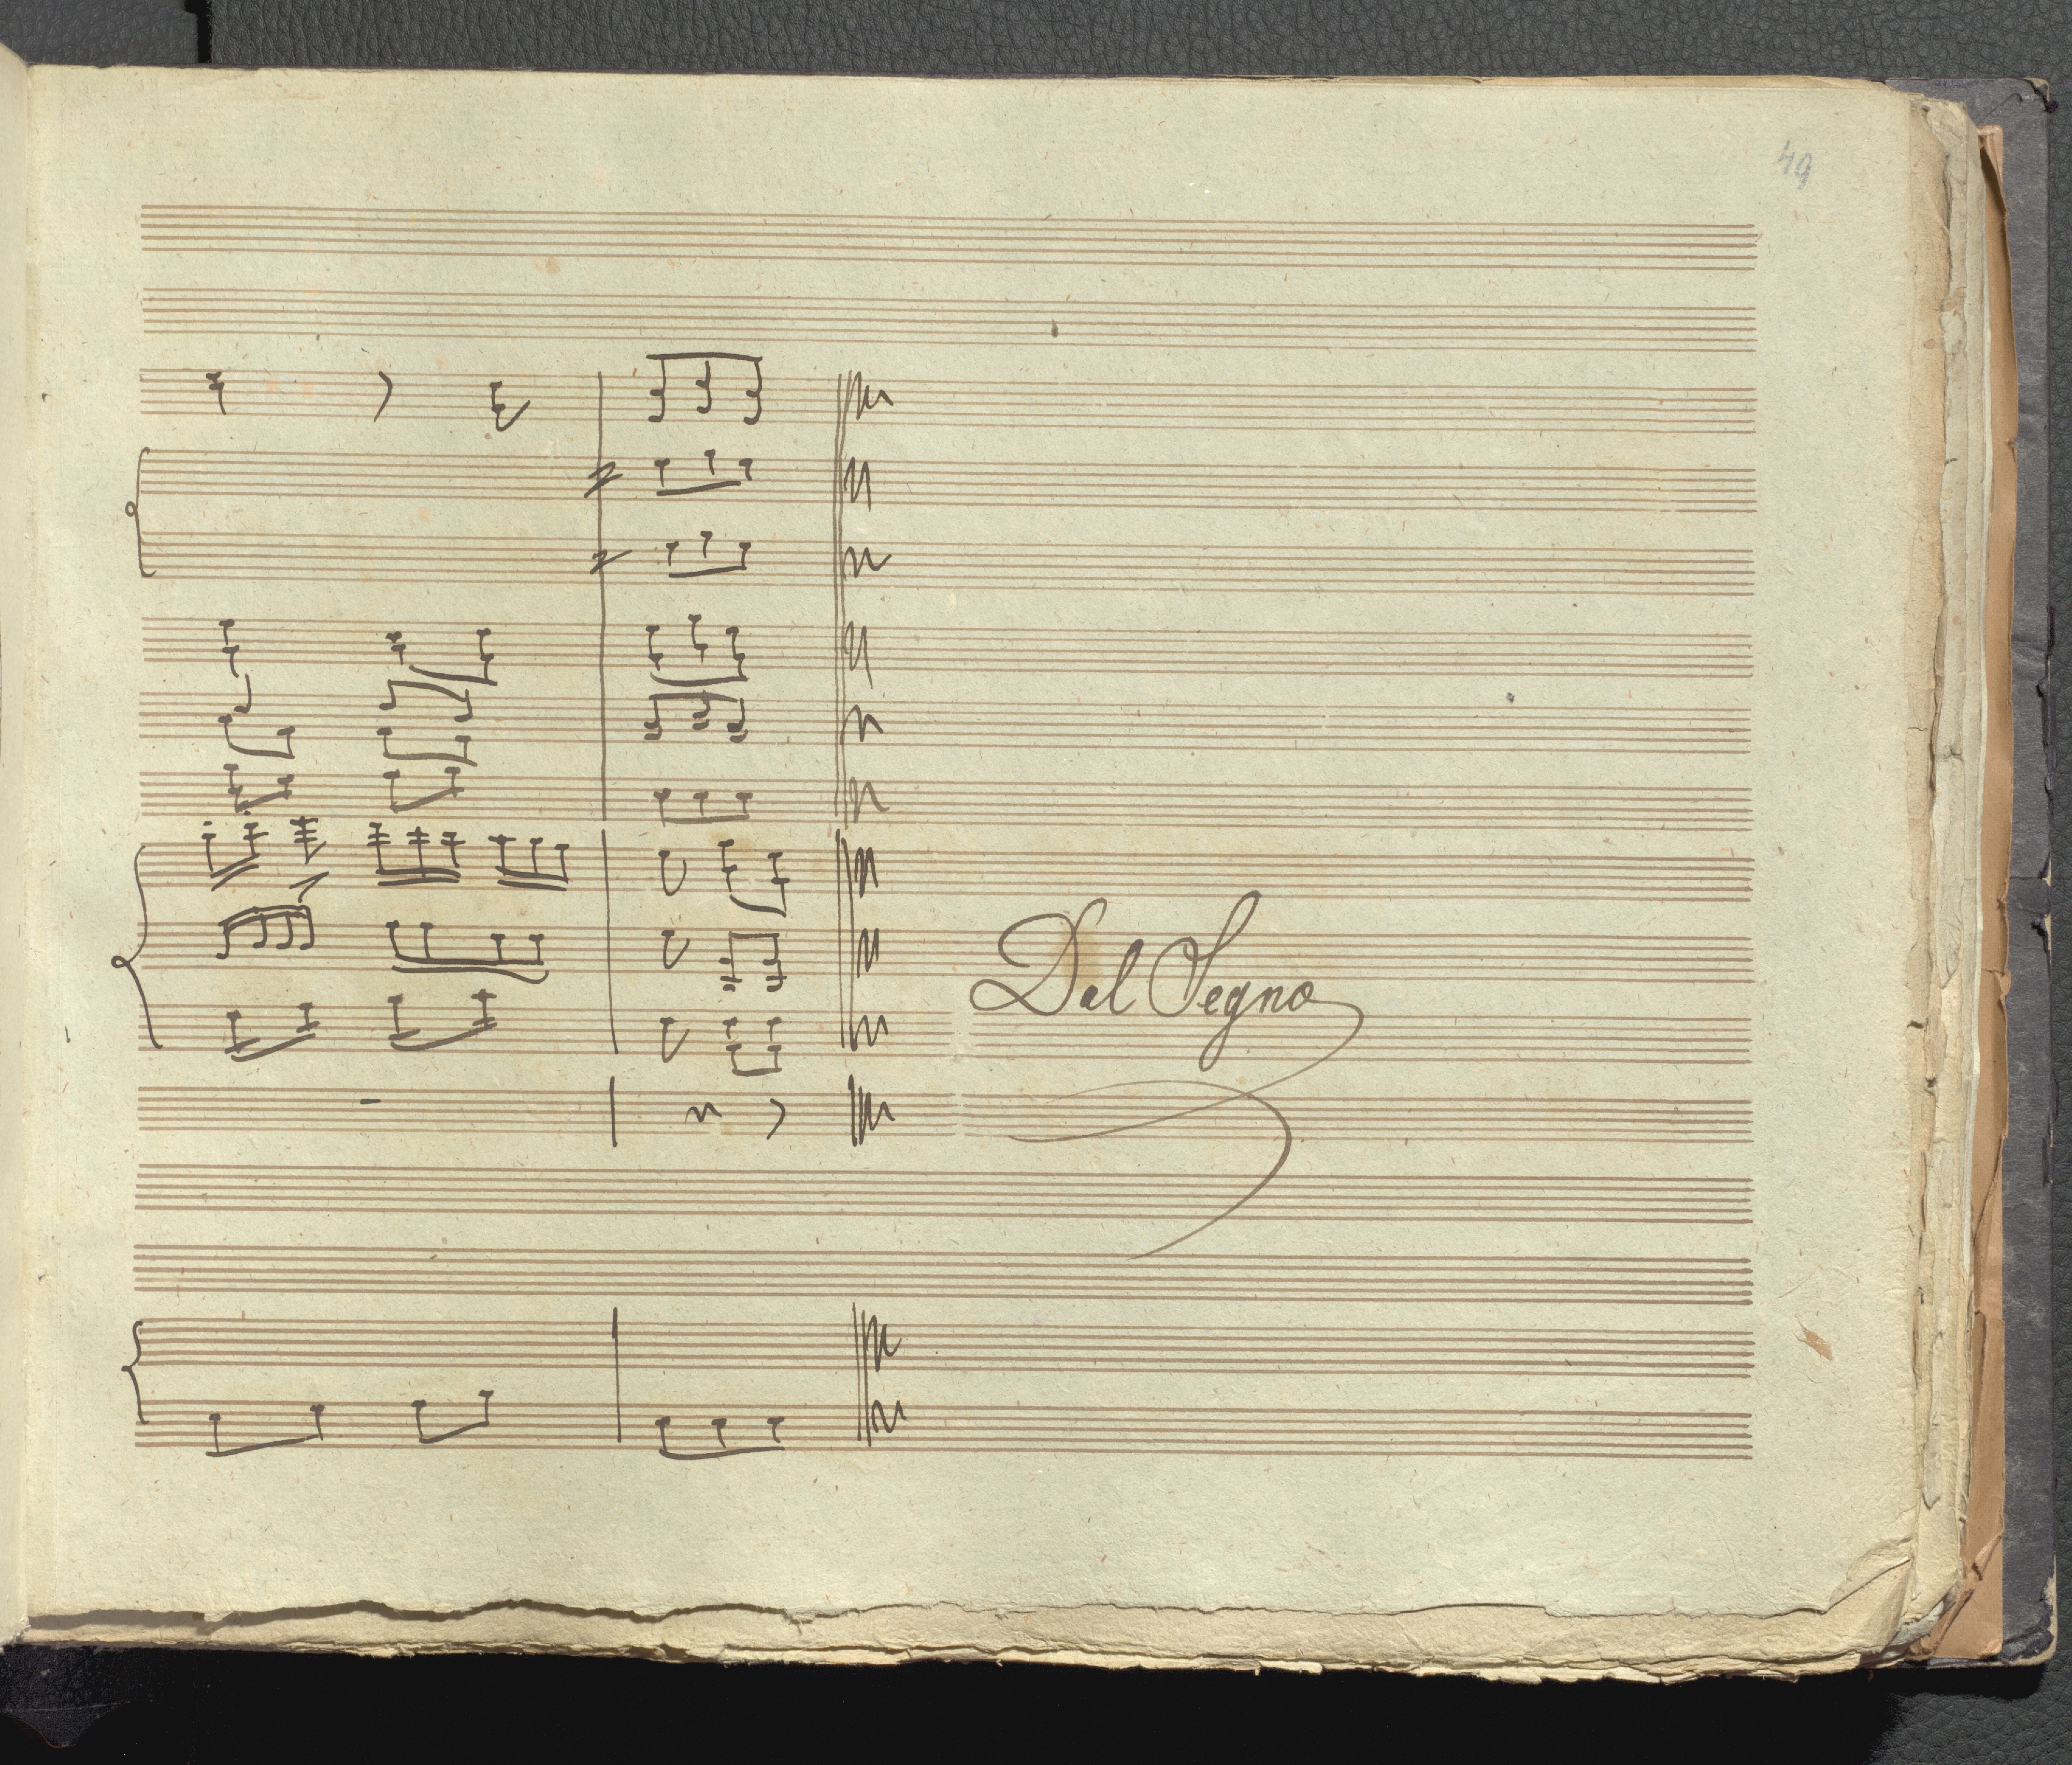 49
Dal Segno